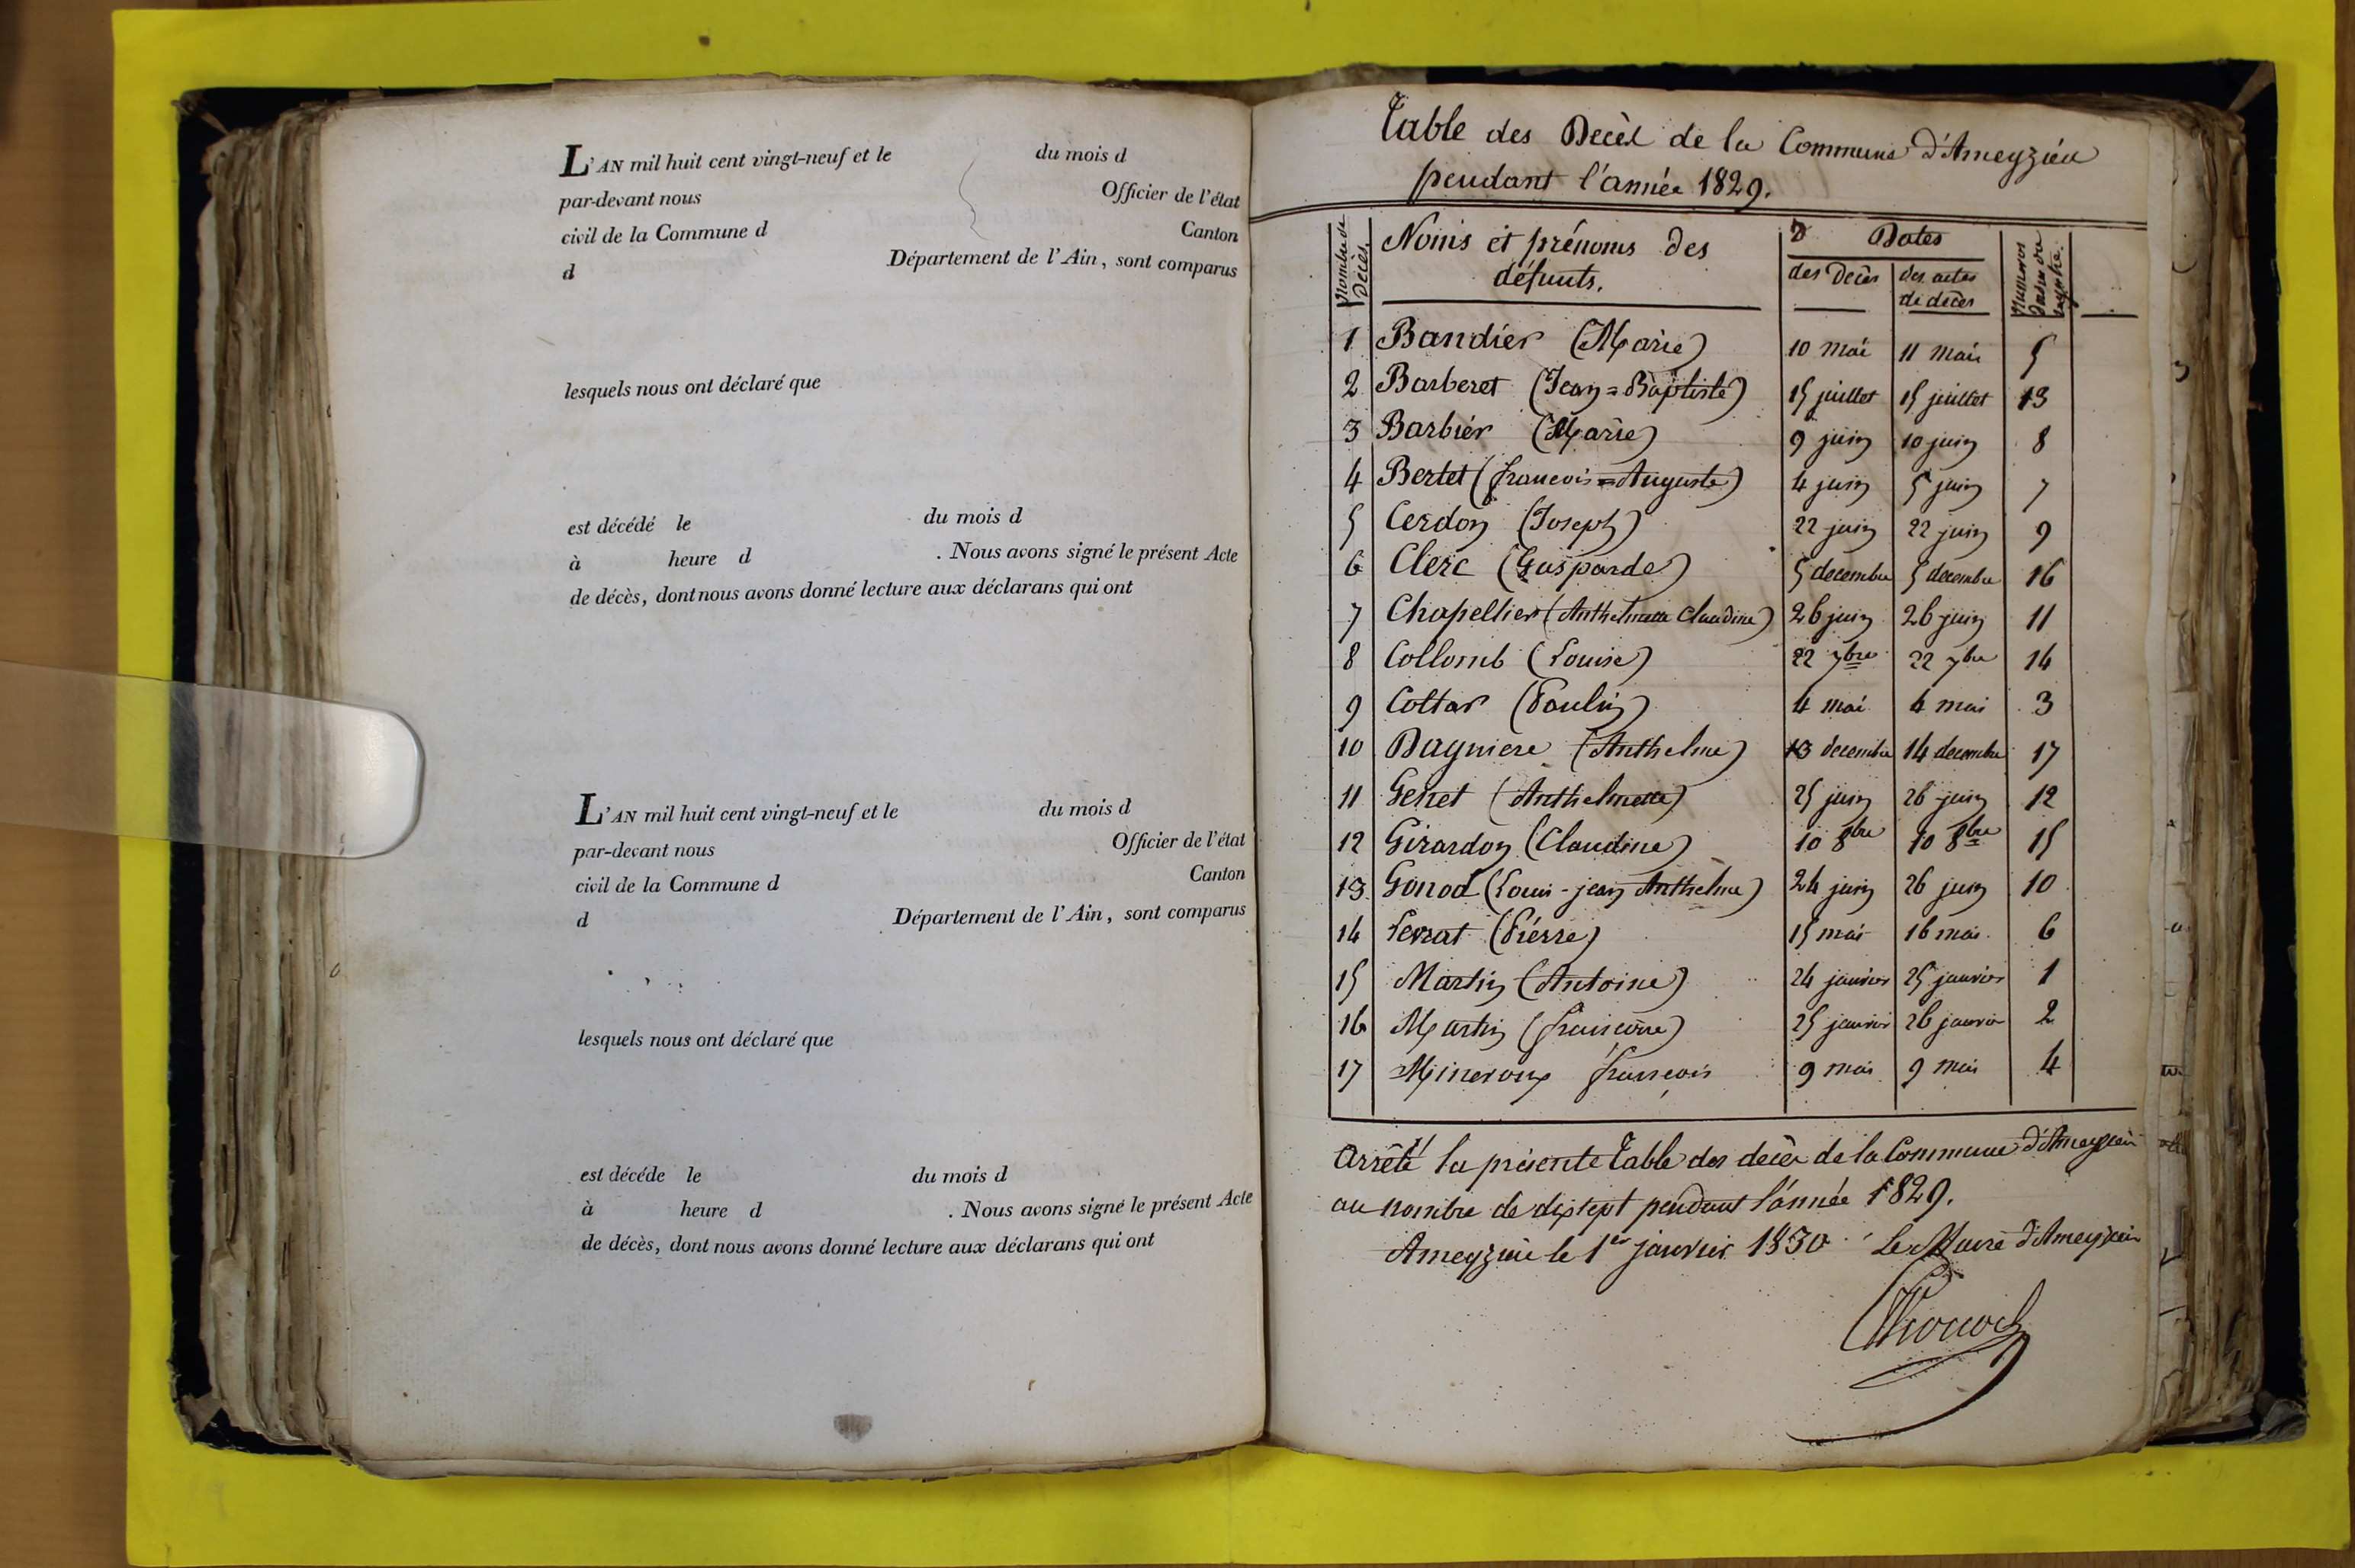 L'AN mil huit cent vingt-neuf et le du mois d
par-devant nous Officier de l'état
civil de la Commune d Canton
d Département de l'Ain, sont comparus
lesquels nous ont déclaré que
est décédé le du mois d
à heure d . Nous avons signé le présent Acte
de décès, dont nous avons donné lecture aux déclarans qui ont
L'AN mil huit cent vingt-neuf et le du mois d
par-devant nous Officier de l'état
civil de la Commune d Canton
d Département de l'Ain, sont comparus
lesquels nous ont déclaré que
est décéde le du mois d
à heure d . Nous avons signé le présent Acte
de décès, dont nous avons donné lecture aux déclarans qui ont
Table des Decès de la Commune d'Ameyzieu
pendant l'année 1829.
Nombre de Décès Noms et prénoms des défunts. Dates des Decès des actes de decès Numeros registre.
1 Bandier (Marie) 10 mai 11 mai 5
2 Barberet (Jean=Baptiste) 15 juillet 15 juillet 13
3 Barbier (Marie) 9 juin 10 juin 8
4 Bertet (francois=Auguste) 4 juin 5 juin 7
5 Cerdon (Joseph) 22 juin 22 juin 9
6 Clerc (Gasparde) 5 decembre 5 decembre 16
7 Chapellier (Anthelmette Claudine) 26 juin 26 juin 11
8 Collomb (Louise) 22 7bre 22 7bre 14
9 Cottar (Paulin) 4 mai 4 mai 3
10 Dagniere (Anthelme) 13 decembre 14 decembre 17
11 Genet (Anthelmette) 25 juin 26 juin 12
12 Girardon (Claudine) 10 8bre 10 8bre 15
13 Gonod (Louis-jean Anthelme) 24 juin 26 juin 10
14 Levrat (Pierre) 15 mai 16 mai 6
15 Martin (Antoine) 24 janvier 25 janvier 1
16 Martin (francoise) 25 janvier 26 janvier 2
17 Mineroux francois 9 mai 9 mai 4
Arrêté la présente Table des decès de la Commune d'Ameyzieu
au nombre de dixsept pendant l'année 1829.
Ameyzieu le 1er janvier 1830 Le Maire d'Ameyzieu